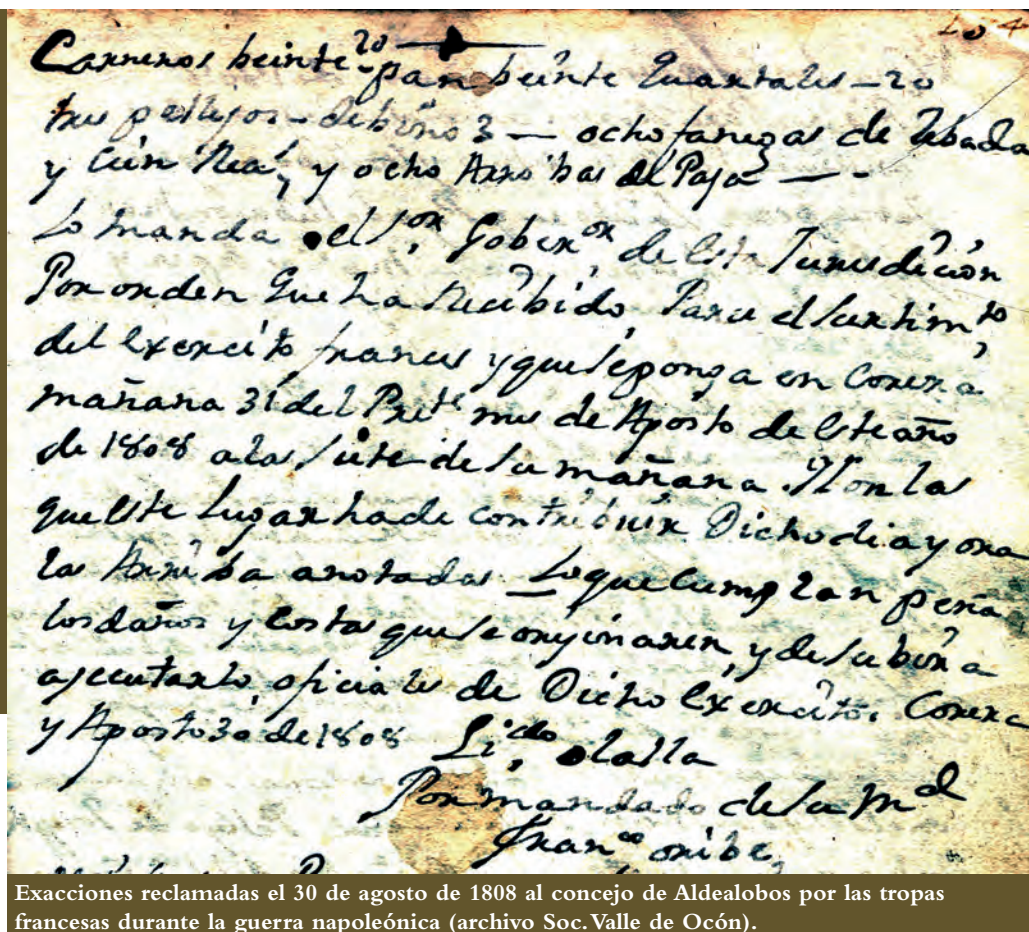 Carneros beinte 20 — pan beinte quartales – 20
tres pellejos – de bino 3 — ocho fanegas de zebada
y cien Rea.s y ocho Arrobas de Paja — -
Lo manda el S.or Gober.or de esta Jurisdicion
Por orden que ha Recibido Para el surtim.to
del exercito frances y que se ponga en Corera
mañana 31 del Pres.te mes de Agosto de este año
de 1808 a las siete de la mañana. son las
que este Lugar ha de contribuir Dicho dia y ora
las Arriba anotadas Lo que cumplan pena
los daños y costas que se originaren, y de subir a
ajecutarlo oficiales de Dicho exercito. Corera
y Agosto 30 de 1808 Li.cdo olalla
Por mandado de su m.d
Fran.co oribe
Exacciones reclamadas el 30 de agosto de 1808 al concejo de Aldealobos por las tropas
francesas durante la guerra napoleónica (archivo Soc. Valle de Ocón).